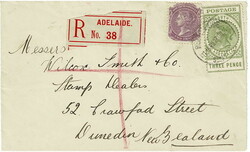 ADELAIDE.
R
No. 38
POSTAGE
THREE PENCE
Messers
Wilcox Smith & Co.
Stamp Dealers
52 Crawford Street
Dunedin New Zealand